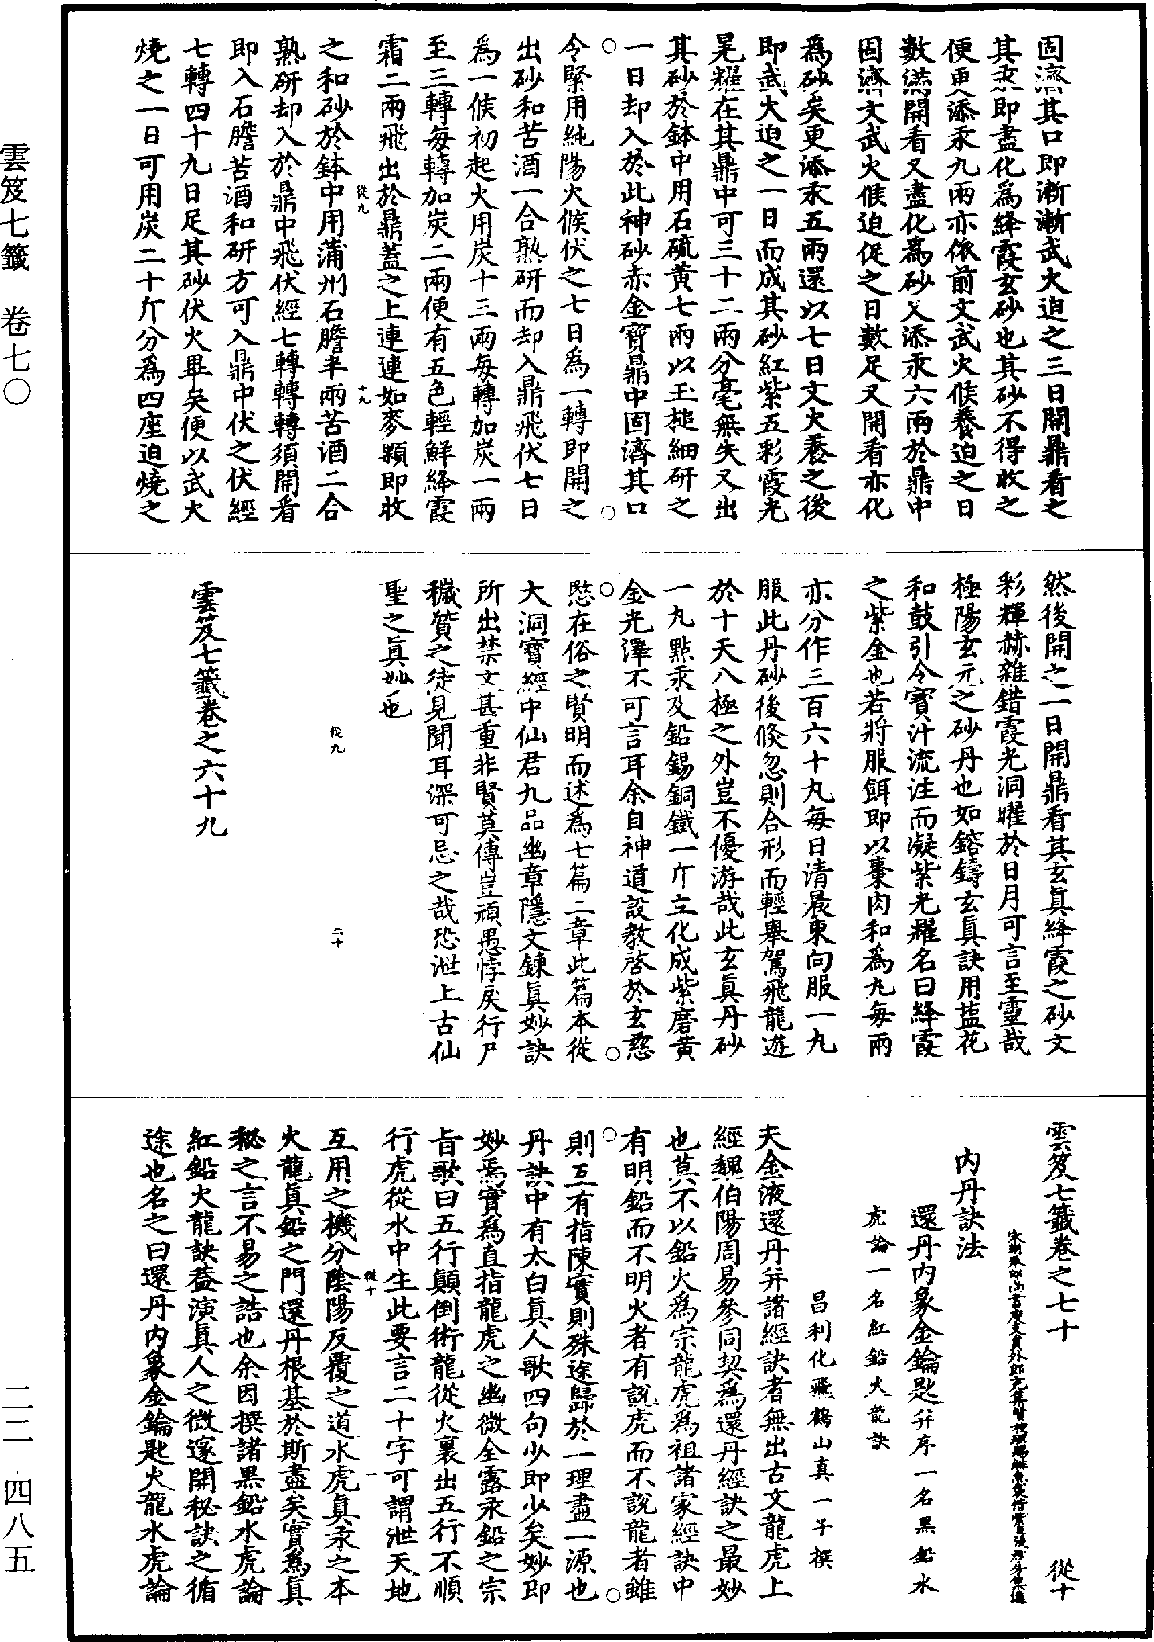 雲笈七籤 卷七〇
二二 四八五
固濟其口即漸漸武火迫之三日開鼎看之
其汞即盡化爲絳霞玄砂也其砂不得收之
便更添汞九兩亦依前文武火候養迫之日
數滿開看又盡化爲砂又添汞六兩於鼎中
固濟文武火候迫促之日數足又開看亦化
爲砂矣更添汞五兩還以七日文火養之後
即武火迫之一日而成其砂紅紫五彩霞光
晃耀在其鼎中可三十二兩分毫無失又出
其砂於鉢中用石硫黃七兩以玉槌細研之
一日却入於此神砂赤金寶鼎中固濟其口
令緊用純陽火候伏之七日爲一轉即開之
出砂和苦酒一合熟研而却入鼎飛伏七日
爲一候初起火用炭十三兩每轉加炭一兩
至三轉每轉加炭二兩便有五色輕鮮絳霞
霜二兩飛出於鼎蓋之上連連如麥顆即收
從九
十九
之和砂於鉢中用蒲州石膽半兩苦酒二合
熟研却入於鼎中飛伏經七轉轉轉須開看
即入石膽苦酒和研方可入鼎中伏之伏經
七轉四十九日足其砂伏火畢矣便以武火
燒之一日可用炭二十斤分爲四座迫燒之
然後開之一日開鼎看其玄真絳霞之砂文
彩輝赫雜錯霞光洞曜於日月可言至靈哉
極陽玄元之砂丹也如鎔鑄玄真訣用鹽花
和鼓引令寶汁流注而凝紫光耀名曰絳霞
之紫金也若將服餌即以棗肉和爲丸每兩
亦分作三百六十丸每日清晨東向服一丸
服此丹砂後倏忽則合形而輕舉駕飛龍遊
於十天八極之外豈不優游哉此玄真丹砂
一丸點汞及鉛錫銅鐵一斤立化成紫磨黃
金光澤不可言耳余自神道設教啓於玄慜
慜在俗之賢明而述爲七篇二章此篇本從
大洞寶經中仙君九品幽章隱文鍊真妙訣
所出禁文甚重非賢莫傳豈頑愚悖戾行尸
穢質之徒見聞耳深可忌之哉恐泄上古仙
聖之真妙也
從九
二十
雲笈七籤卷之六十九
雲笈七籤卷之七十
從十
內丹訣法
還丹內象金鑰匙并序一名黑鉛水
虎論一名紅鉛火龍訣
昌利化飛鶴山真一子撰
夫金液還丹并諸經訣者無出古文龍虎上
經魏伯陽周易參同契爲還丹經訣之最妙
也莫不以鉛火爲宗龍虎爲祖諸家經訣中
有明鉛而不明火者有說虎而不說龍者雖
則互有指陳實則殊途歸於一理盡一源也
丹訣中有太白真人歌四句少即少矣妙即
妙焉實爲直指龍虎之幽微全露汞鉛之宗
旨歌曰五行顛倒術龍從火裏出五行不順
行虎從水中生此要言二十字可謂泄天地
從十
一
互用之機分陰陽反覆之道水虎真汞之本
火龍真鉛之門還丹根基於斯盡矣實爲真
秘之言不易之誥也余因撰諸黑鉛水虎論
紅鉛火龍訣蓋演真人之微邃開秘訣之循
途也名之曰還丹內象金鑰匙火龍水虎論